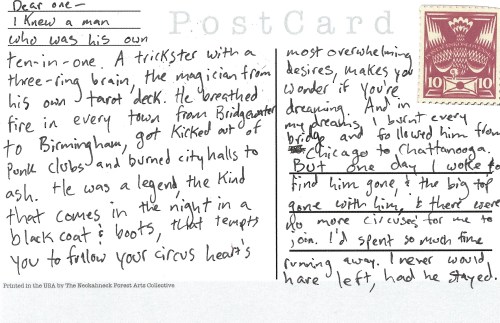 Dear one—
PostCard
I Knew a man
who was his own
ten-in-one. A trickster with a
three-ring brain, the magician from
his own tarot deck. He breathed
fire in every town from Bridgewater
to Birmingham, got kicked out of
punk clubs and burned city halls to
ash. He was a legend, the kind
that comes in the night in a
black coat & boots, that tempts
you to follow your circus heart's
Printed in the USA by The Neokahneck Forest Arts Collective
10 10
most overwhelming
desires, makes you
wonder if you're
dreaming. And in
my dreams, I burnt every
bridge and followed him from
Chicago to Chattanooga.
But one day I woke to
find him gone, & the big top
gone with him, & there were
no more circuses for me to
join. I'd spent so much time
running away. I never would
have left, had he stayed.